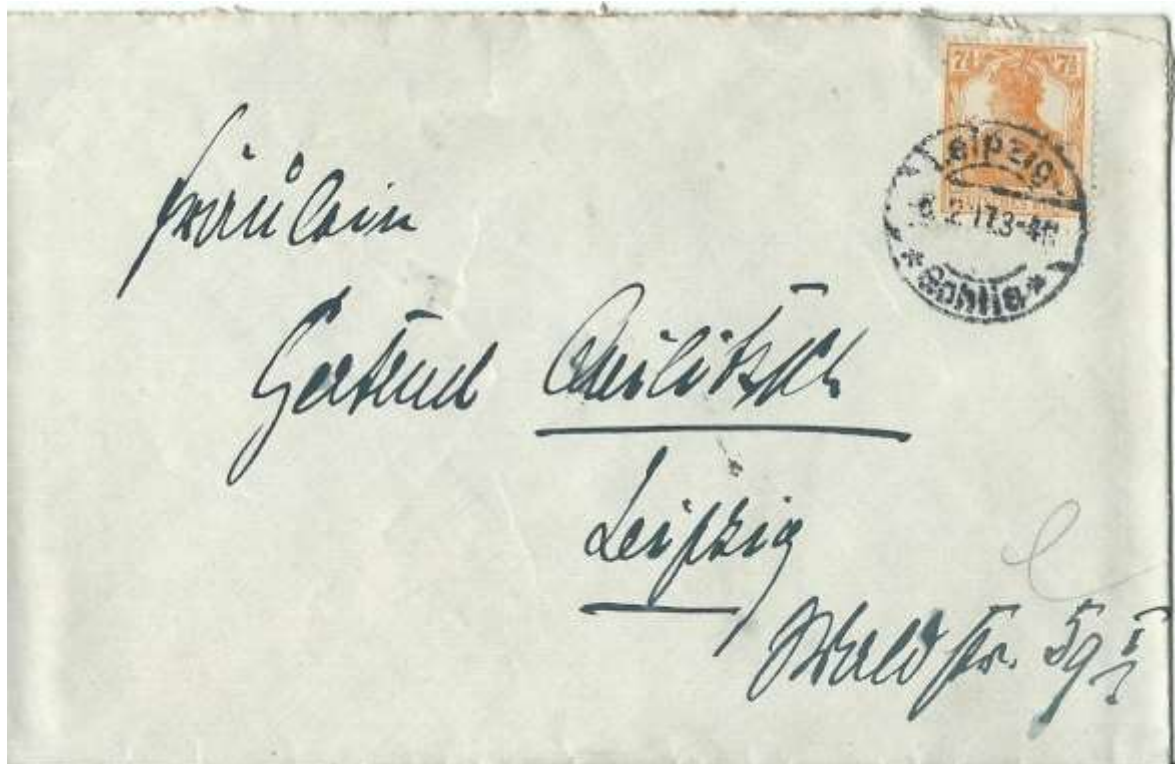 7½ 7½
Leipzig
2 17.3-4N
* Gohlis *
Fräulein
Gertrud
Leipzig
Waldstr. 59 I